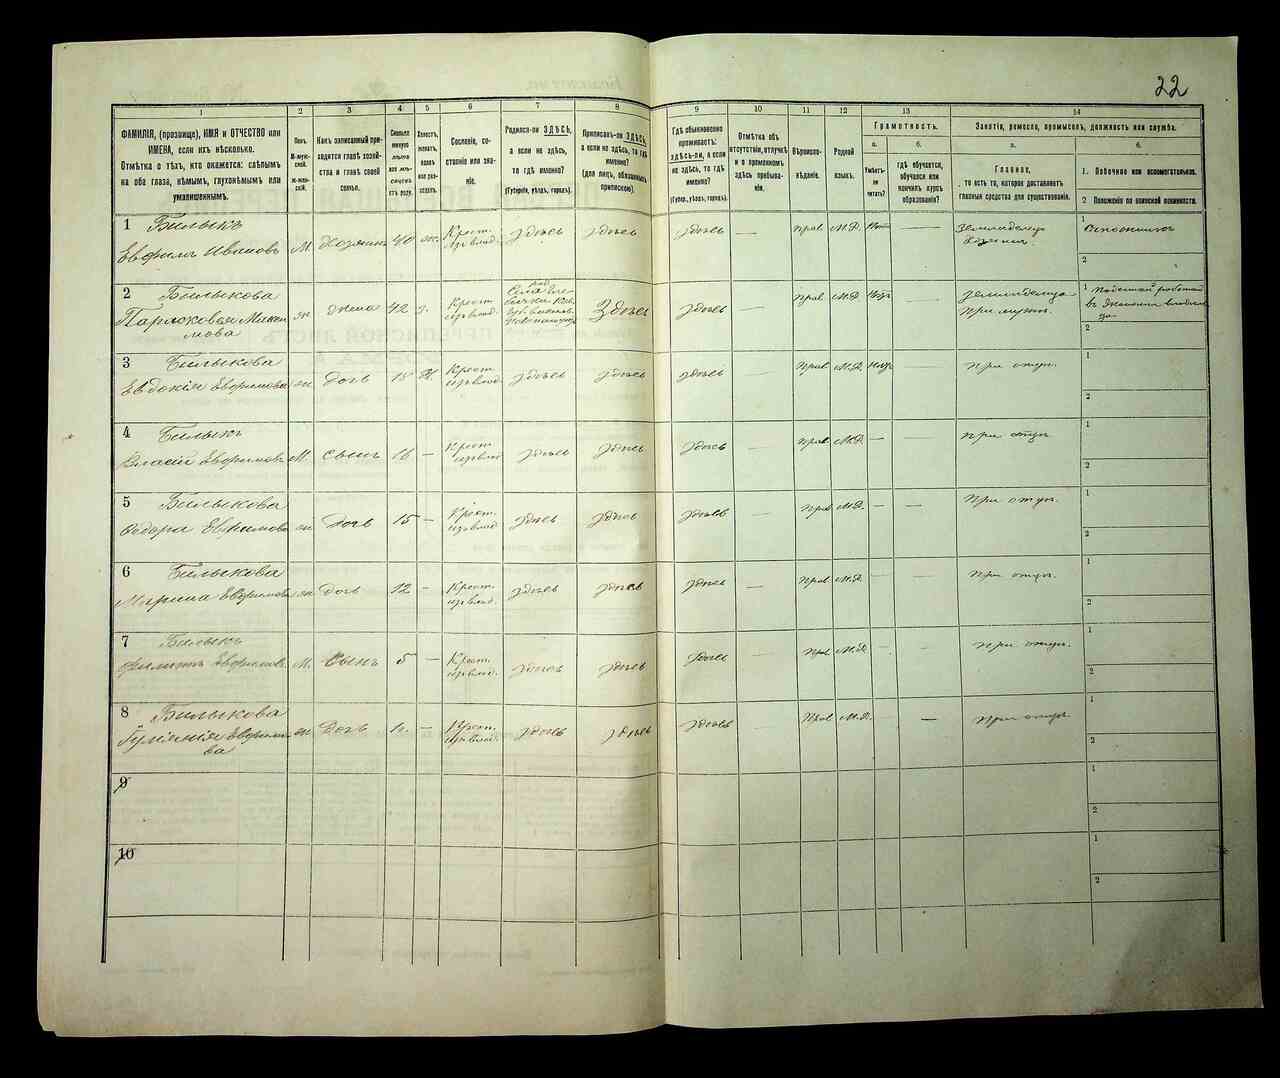 22
1 2 3 4 5 6 7 8 9 10 11 12 13 14
ФАМИЛІЯ, (прозвище), ИМЯ и ОТЧЕСТВО или
ИМЕНА, если ихъ нѣсколько.
Отмѣтка о тѣхъ, кто окажется: слѣпымъ
на оба глаза, нѣмымъ, глухонѣмымъ или
умалишеннымъ.
Полъ.
М-муж-
ской.
ж-жен-
скій.
Какъ записанный при-
ходится главѣ хозяй-
ства и главѣ своей
семьи.
Сколько
минуло
лѣтъ
или мѣ-
сяцевъ
отъ роду.
Холостъ,
женатъ,
вдовъ
или раз-
веденъ.
Сословіе, со-
стояніе или зва-
ніе.
Родился-ли ЗДѢСЬ,
а если не здѣсь,
то гдѣ именно?
(Губернія, уѣздъ, городъ).
Приписанъ-ли ЗДѢСЬ,
а если не здѣсь, то гдѣ
именно?
(для лицъ, обязанныхъ
припиской).
Гдѣ обыкновенно
проживаетъ:
здѣсь-ли, а если
не здѣсь, то гдѣ
именно?
(Губер., уѣздъ, городъ).
Отмѣтка объ
отсутствіи, отлучкѣ
и о временномъ
здѣсь пребыва-
ніи.
Вѣроиспо-
вѣданіе.
Родной
языкъ.
Грамотность.
а.
Умѣетъ-
ли
читать?
б.
гдѣ обучается,
обучался или
кончилъ курсъ
образованія?
Занятія, ремесло, промыселъ, должность или служба.
а.
Главное,
то есть то, которое доставляетъ
главныя средства для существованія.
б.
1. Побочное или вспомогательное.
2 Положеніе по воинской повинности.
1 Билыкъ
Евфимъ Ивановъ М. Хозяинъ 40 ж. Крест. изъ влад. здѣсь здѣсь здѣсь — прав. М.Р. Нѣтъ — Земледелецъ 1
2
2 Билыкова
жена 42 з. Крест. изъ влад. Здѣсь здѣсь — прав. М.Р. — 1
2
3 Билыкова
Евдокія Евфимова ж. дочь 18 Крест. изъ влад. здѣсь здѣсь здѣсь — прав. М.Р. — при отцѣ. 1
2
4 Билыкъ
Власій Евфимовъ М. сынъ 16 — Крест. изъ влад. здѣсь здѣсь здѣсь — прав. М.Р. — — при отцѣ 1
2
5 Билыкова
Евфимова ж. дочь 15 — Крест. изъ влад. здѣсь здѣсь здѣсь — прав. М.Р. — — При отцѣ. 1
2
6 Билыкова
Марина Евфимова ж. дочь 12 — Крест. изъ влад. здѣсь здѣсь здѣсь — прав. М.Р. — При отцѣ. 1
2
7 Билыкъ
Филиппъ Евфимовъ М. сынъ 5 — Крест. изъ влад. здѣсь здѣсь здѣсь — прав. М.Р. — при отцѣ. 1
2
8 Билыкова
Евфимо-
ва ж. Дочь — Крест. изъ влад. здѣсь здѣсь здѣсь прав. М.Р. — при отцѣ. 1
2
9 1
2
10 1
2